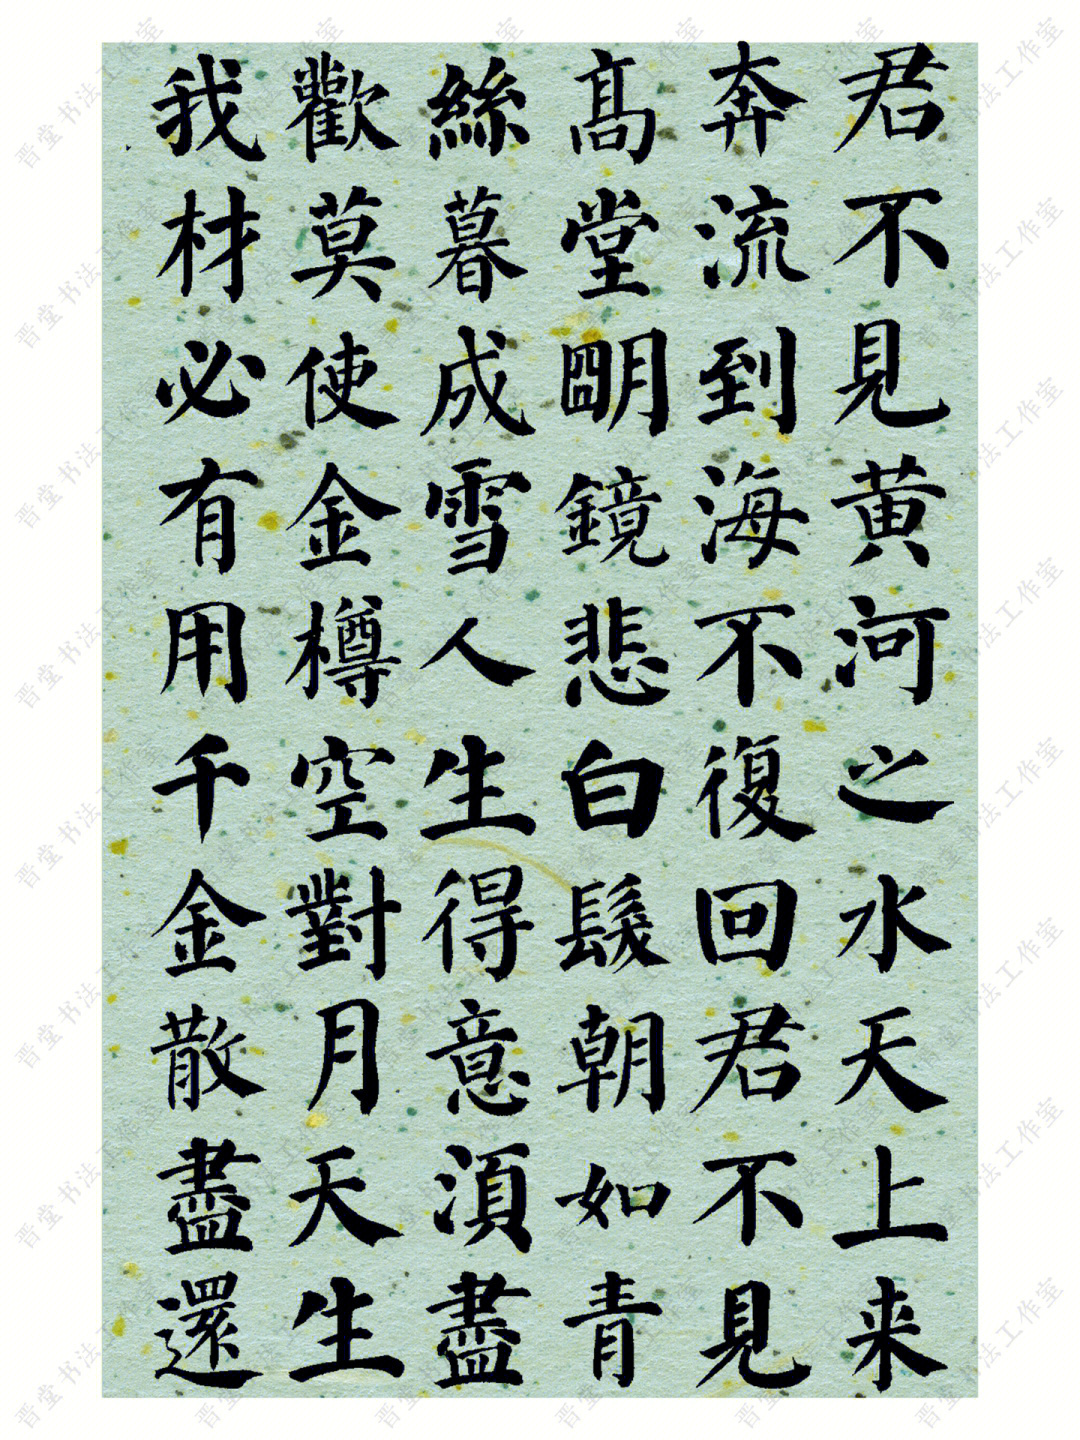 君不見黄河之水天上来
奔流到海不復回君不見
髙堂朙鏡悲白髮朝如青
絲暮成雪人生得意湏盡
歡莫使金樽空對月天生
我材必有用千金散盡還
晋堂书法工作室